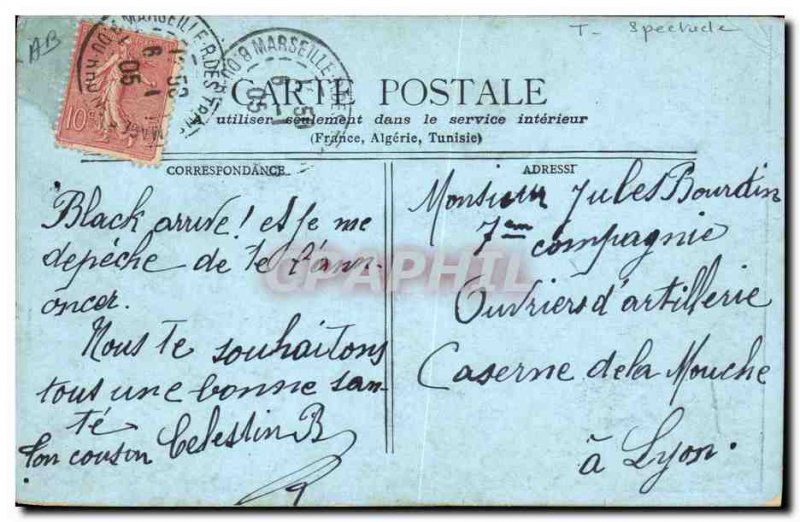 AB
T- Spectacle
10
MARSEILLE
6 -1
05
MARSEILLE
6 -1
05
CARTE POSTALE
A utiliser seulement dans le service intérieur
(France, Algérie, Tunisie)
CORRESPONDANCE
Black arrive! et je me
depéche de te l'ann-
oncer.
Nous te souhaitons
tous une bonne san-
té
Ton cousin Celestin B
ADRESSE
Monsieur Jules Bourdin
7em compagnie
Ouvriers d'artillerie
Caserne de la Mouche
à Lyon.
CPAPHIL